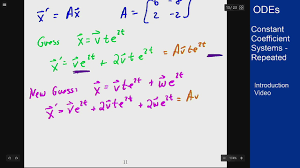 x⃗' = Ax⃗   A = [
2 -2]
Guess x⃗ = v⃗te^{2t}
x⃗' = v⃗e^{2t} + 2v⃗te^{2t} = Av⃗te^{2t}
New Guess: x⃗ = v⃗te^{2t} + w⃗e^{2t}
x⃗' = v⃗e^{2t} + 2v⃗te^{2t} + 2w⃗e^{2t} = Av
11
ODEs
Constant
Coefficient
Systems -
Repeated
Introduction
Video